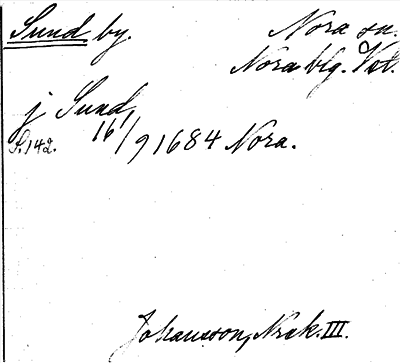 Sund by.
Nora sn.
Nora blg. Vstl.
j Sund,
S. 142. 16/9 1684 Nora.
Johansson, Nrak. III.